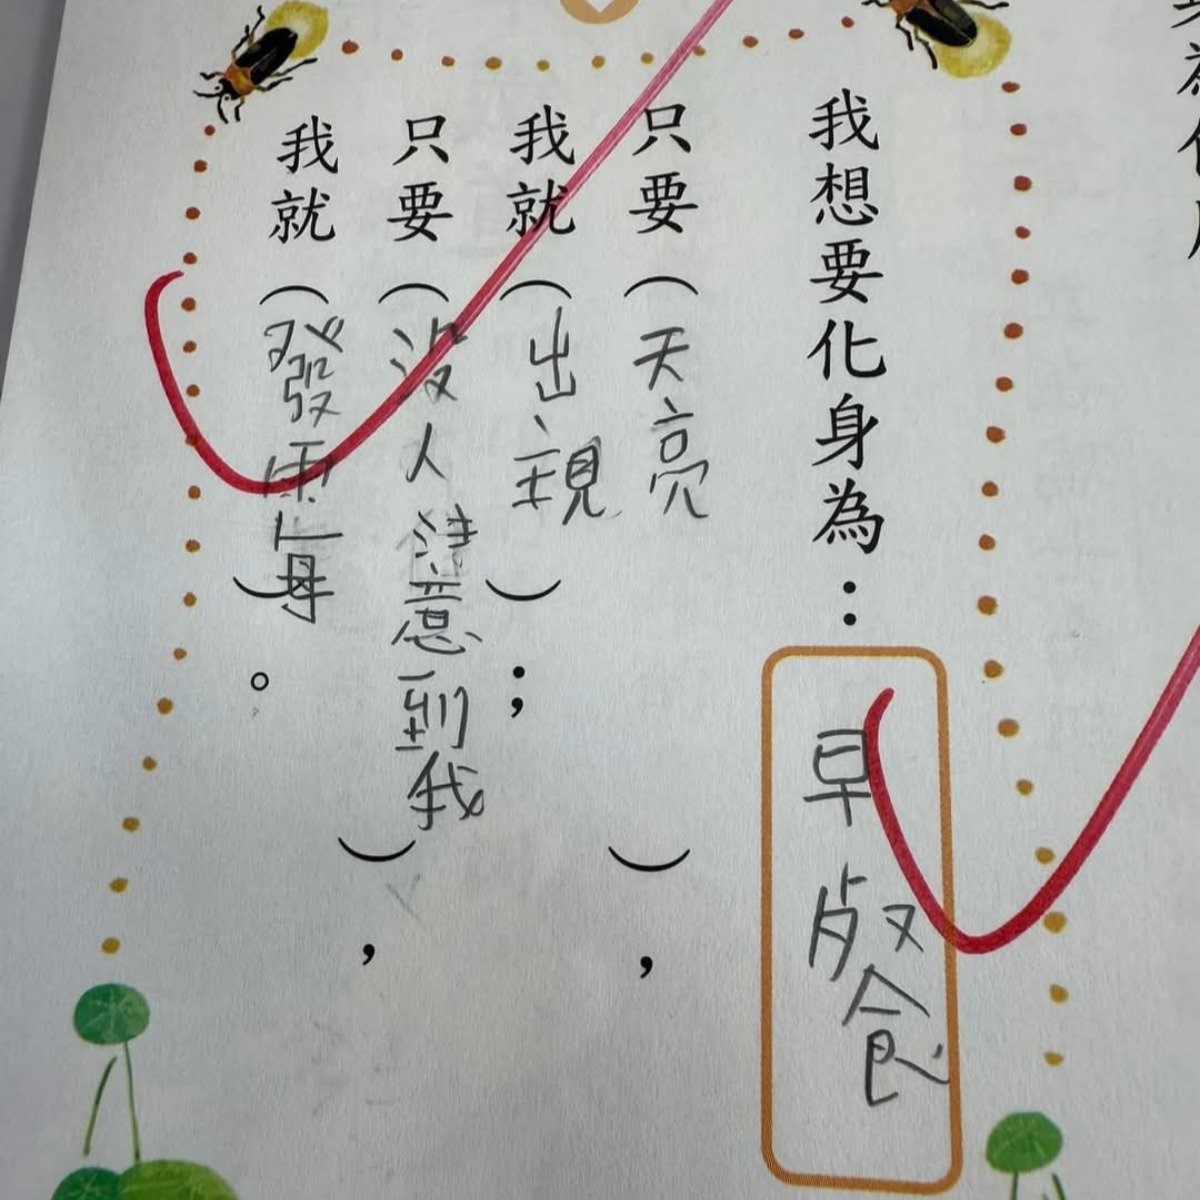 我想要化身為：早餐
只要（天亮），
我就（出現）；
只要（没人注意到我），
我就（發霉）。